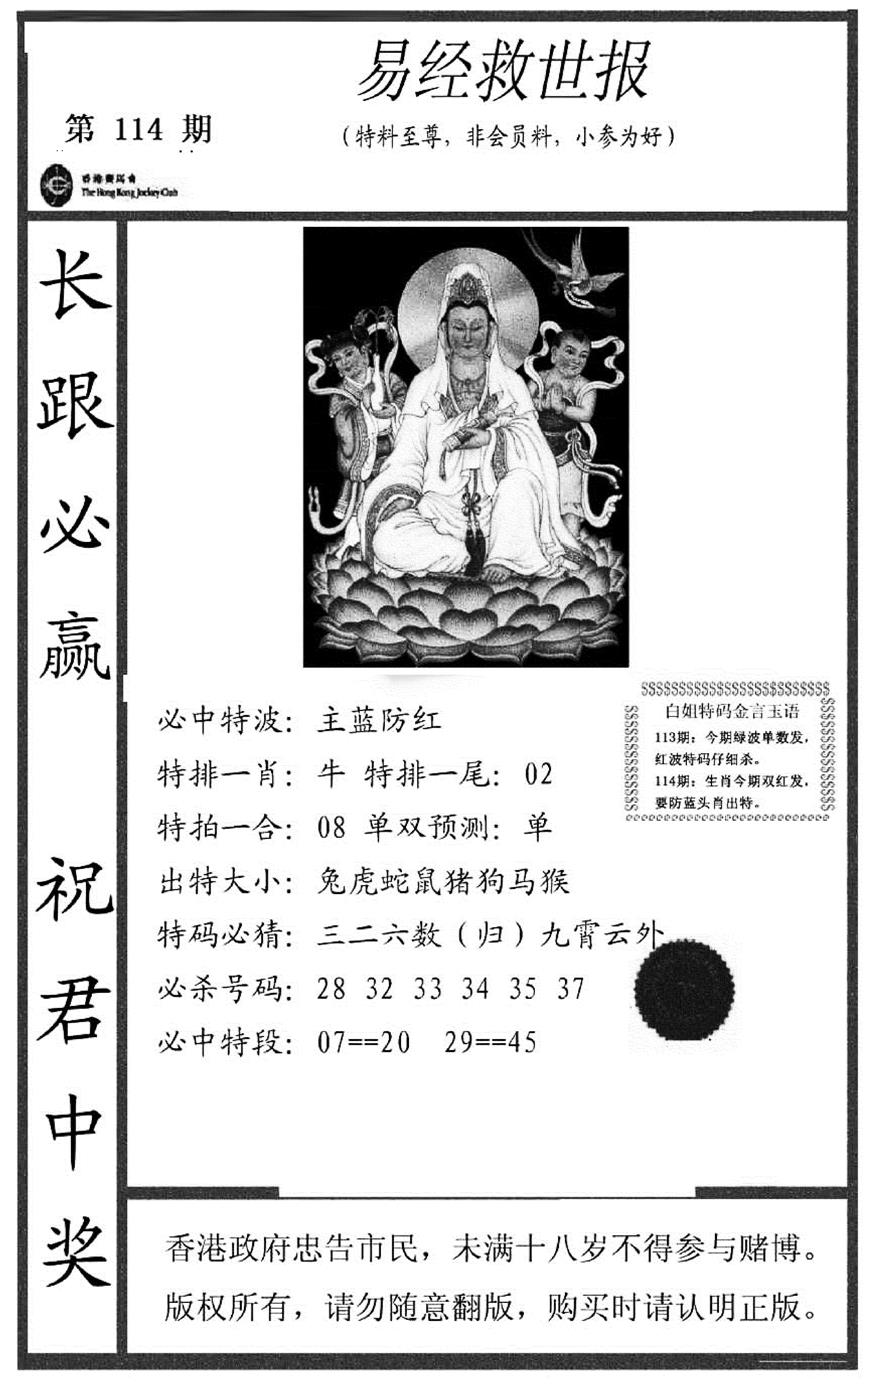 易经救世报
第 114 期
(特料至尊,非会员料,小参为好)
香港賽馬會
The Hong Kong Jockey Club
长跟必赢 祝君中奖
必中特波:主蓝防红
特排一肖:牛 特排一尾:02
特拍一合:08 单双预测:单
出特大小:兔虎蛇鼠猪狗马猴
特码必猜:三二六数(归)九霄云外
必杀号码:28 32 33 34 35 37
必中特段:07==20 29==45
$$$$$$$$$$$$$$$$$$$$$$$$$$$
白姐特码金言玉语
113期:今期绿波单数发,
红波特码仔细杀。
114期:生肖今期双红发,
要防蓝头肖出特。
香港政府忠告市民,未满十八岁不得参与赌博。
版权所有,请勿随意翻版,购买时请认明正版。